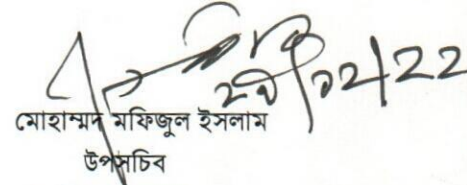 ২৮/১২/২২
মোহাম্মদ মফিজুল ইসলাম
উপসচিব